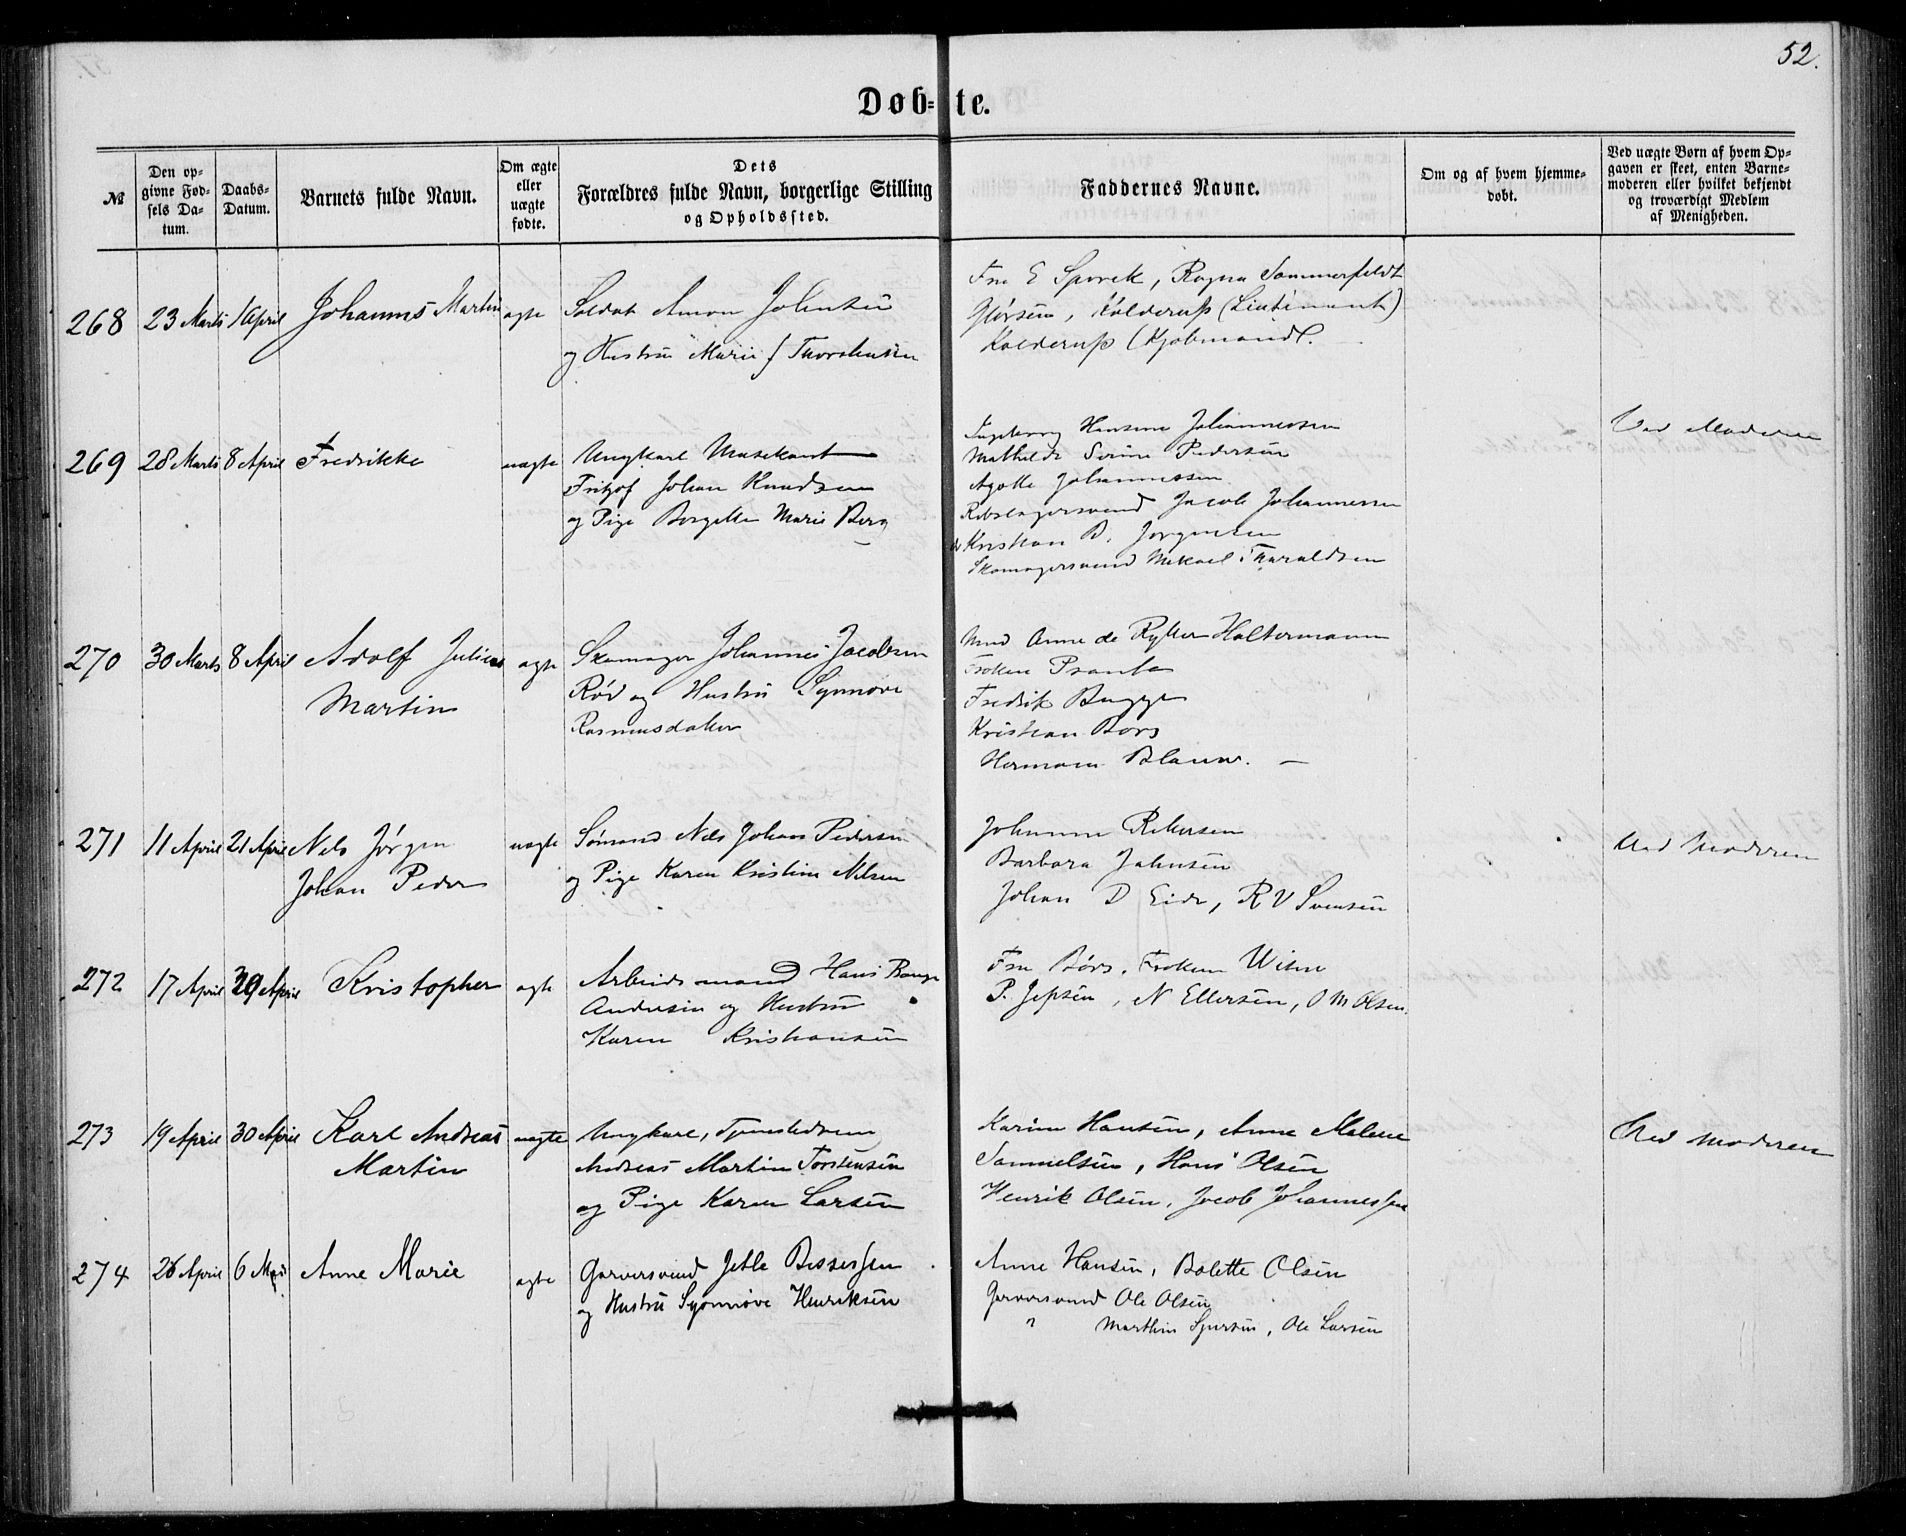 52.
Døb=te.
№
Den opgivne Fødsels Datum.
Daabs-Datum.
Barnets fulde Navn.
Om ægte eller uægte fødte.
Dets Forældres fulde Navn, borgerlige Stilling og Opholdssted.
Faddernes Navne.
Om og af hvem hjemmedøbt.
Ved uægte Børn af hvem Opgaven er skeet, enten Barnemoderen eller hvilket bekjendt og troværdigt Medlem af Menigheden.
268 23 Marts 1 April Johannes Martin ægte
Soldat Amon Johnsen
og Hustru Marie f Thorstensen
Fru E Sporck, Ragna Sommerfeldt
Kolderup (Lieutenant)
Kolderup (Kjøbmand).
269 28 Marts 8 April Fredrikke uægte
Ungkarl Musekant
Fritjof Johan Knudsen
og Pige Borgette Marie Berg
Ingeborg Hansine Johannessen
Mathilde Serine Pedersen
Agotte Johannessen
Rebslagersvend Jacob Johannessen
Kristian B. Jørgensen
Skomagersvend Mikael Tharaldsen
Ved Moderen
270 30 Marts 8 April Adolf Julius
Martin
ægte
Skomager Johannes Jacobsen
Röd og Hustru Synnøve
Rasmusdatter
Mad Anne de Rytter Haltermann
Frøken Prante
Fredrik Bugge
Kristian Børs
Herman Blauw. —
271 11 April 21 April Nels Jørgen
Johan Peder
uægte
Sømand Nels Johan Pedersen
og Pige Karen Kristine Nilsen
Johanne Rekersen
Barbara Jahnsen
Johan D Eide, R V Svensen
Ved Moderen
272 17 April 29 April Kristopher ægte
Arbeidsmand Hans Bange
Andersen og Hustru
Karen Kristiansen
Fru Børs, Frøken Wiese
P. Jepsen, N Ellersen, O M Olsen.
273 19 April 30 April Karl Andreas
Martin
uægte
Ungkarl, Tjenestedreng
Andreas Martin Torstensen
og Pige Karen Larsen
Karine Hansen, Anne Malene
Samuelsen, Hans Olsen
Henrik Olsen, Jacob Johannessen
Ved Moderen
274 26 April 6 Mai Anne Marie ægte
Garversvend Jetle Bessesen
og Hustru Synnøve Henriksen
Anne Hansen, Bolette Olsen
Garversvend Ole Olsen
" Marthin Sjursen, Ole Larsen